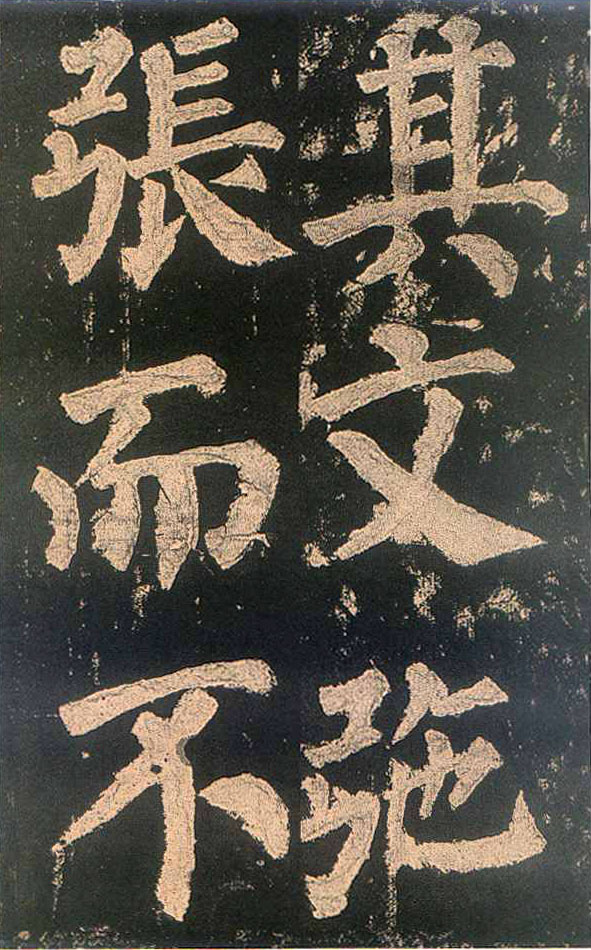 其文㢮
張而不